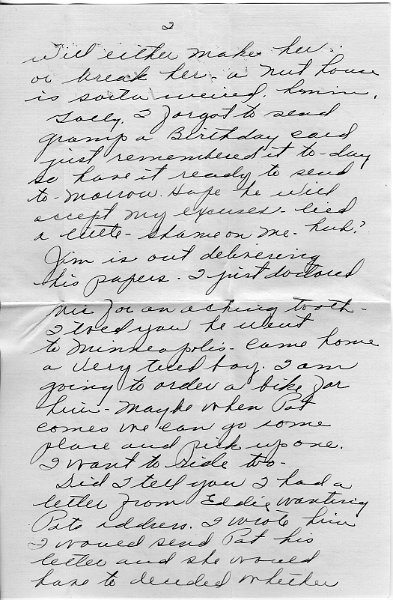 2
will either make her.
or break her - a nut house
is sorta weird, hmm.
Golly, I forgot to send
gramp a Birthday card
just remembered it to-day
so have it ready to send
to-morrow. Hope he will
accept my excuses - lied
a little - shame on me - huh?
Jim is out delivering
his papers - I just doctored
him for an aching tooth -
I told you he went
to Minneapolis - came home
a very tired boy. I am
going to order a bike for
him - maybe when Pat
comes we can go some
place and pick up one.
I want to ride to -
Did I tell you I had a
letter from Eddie wanting
Pats address. I wrote him
I would send Pat his
letter and she would
have to decided whether